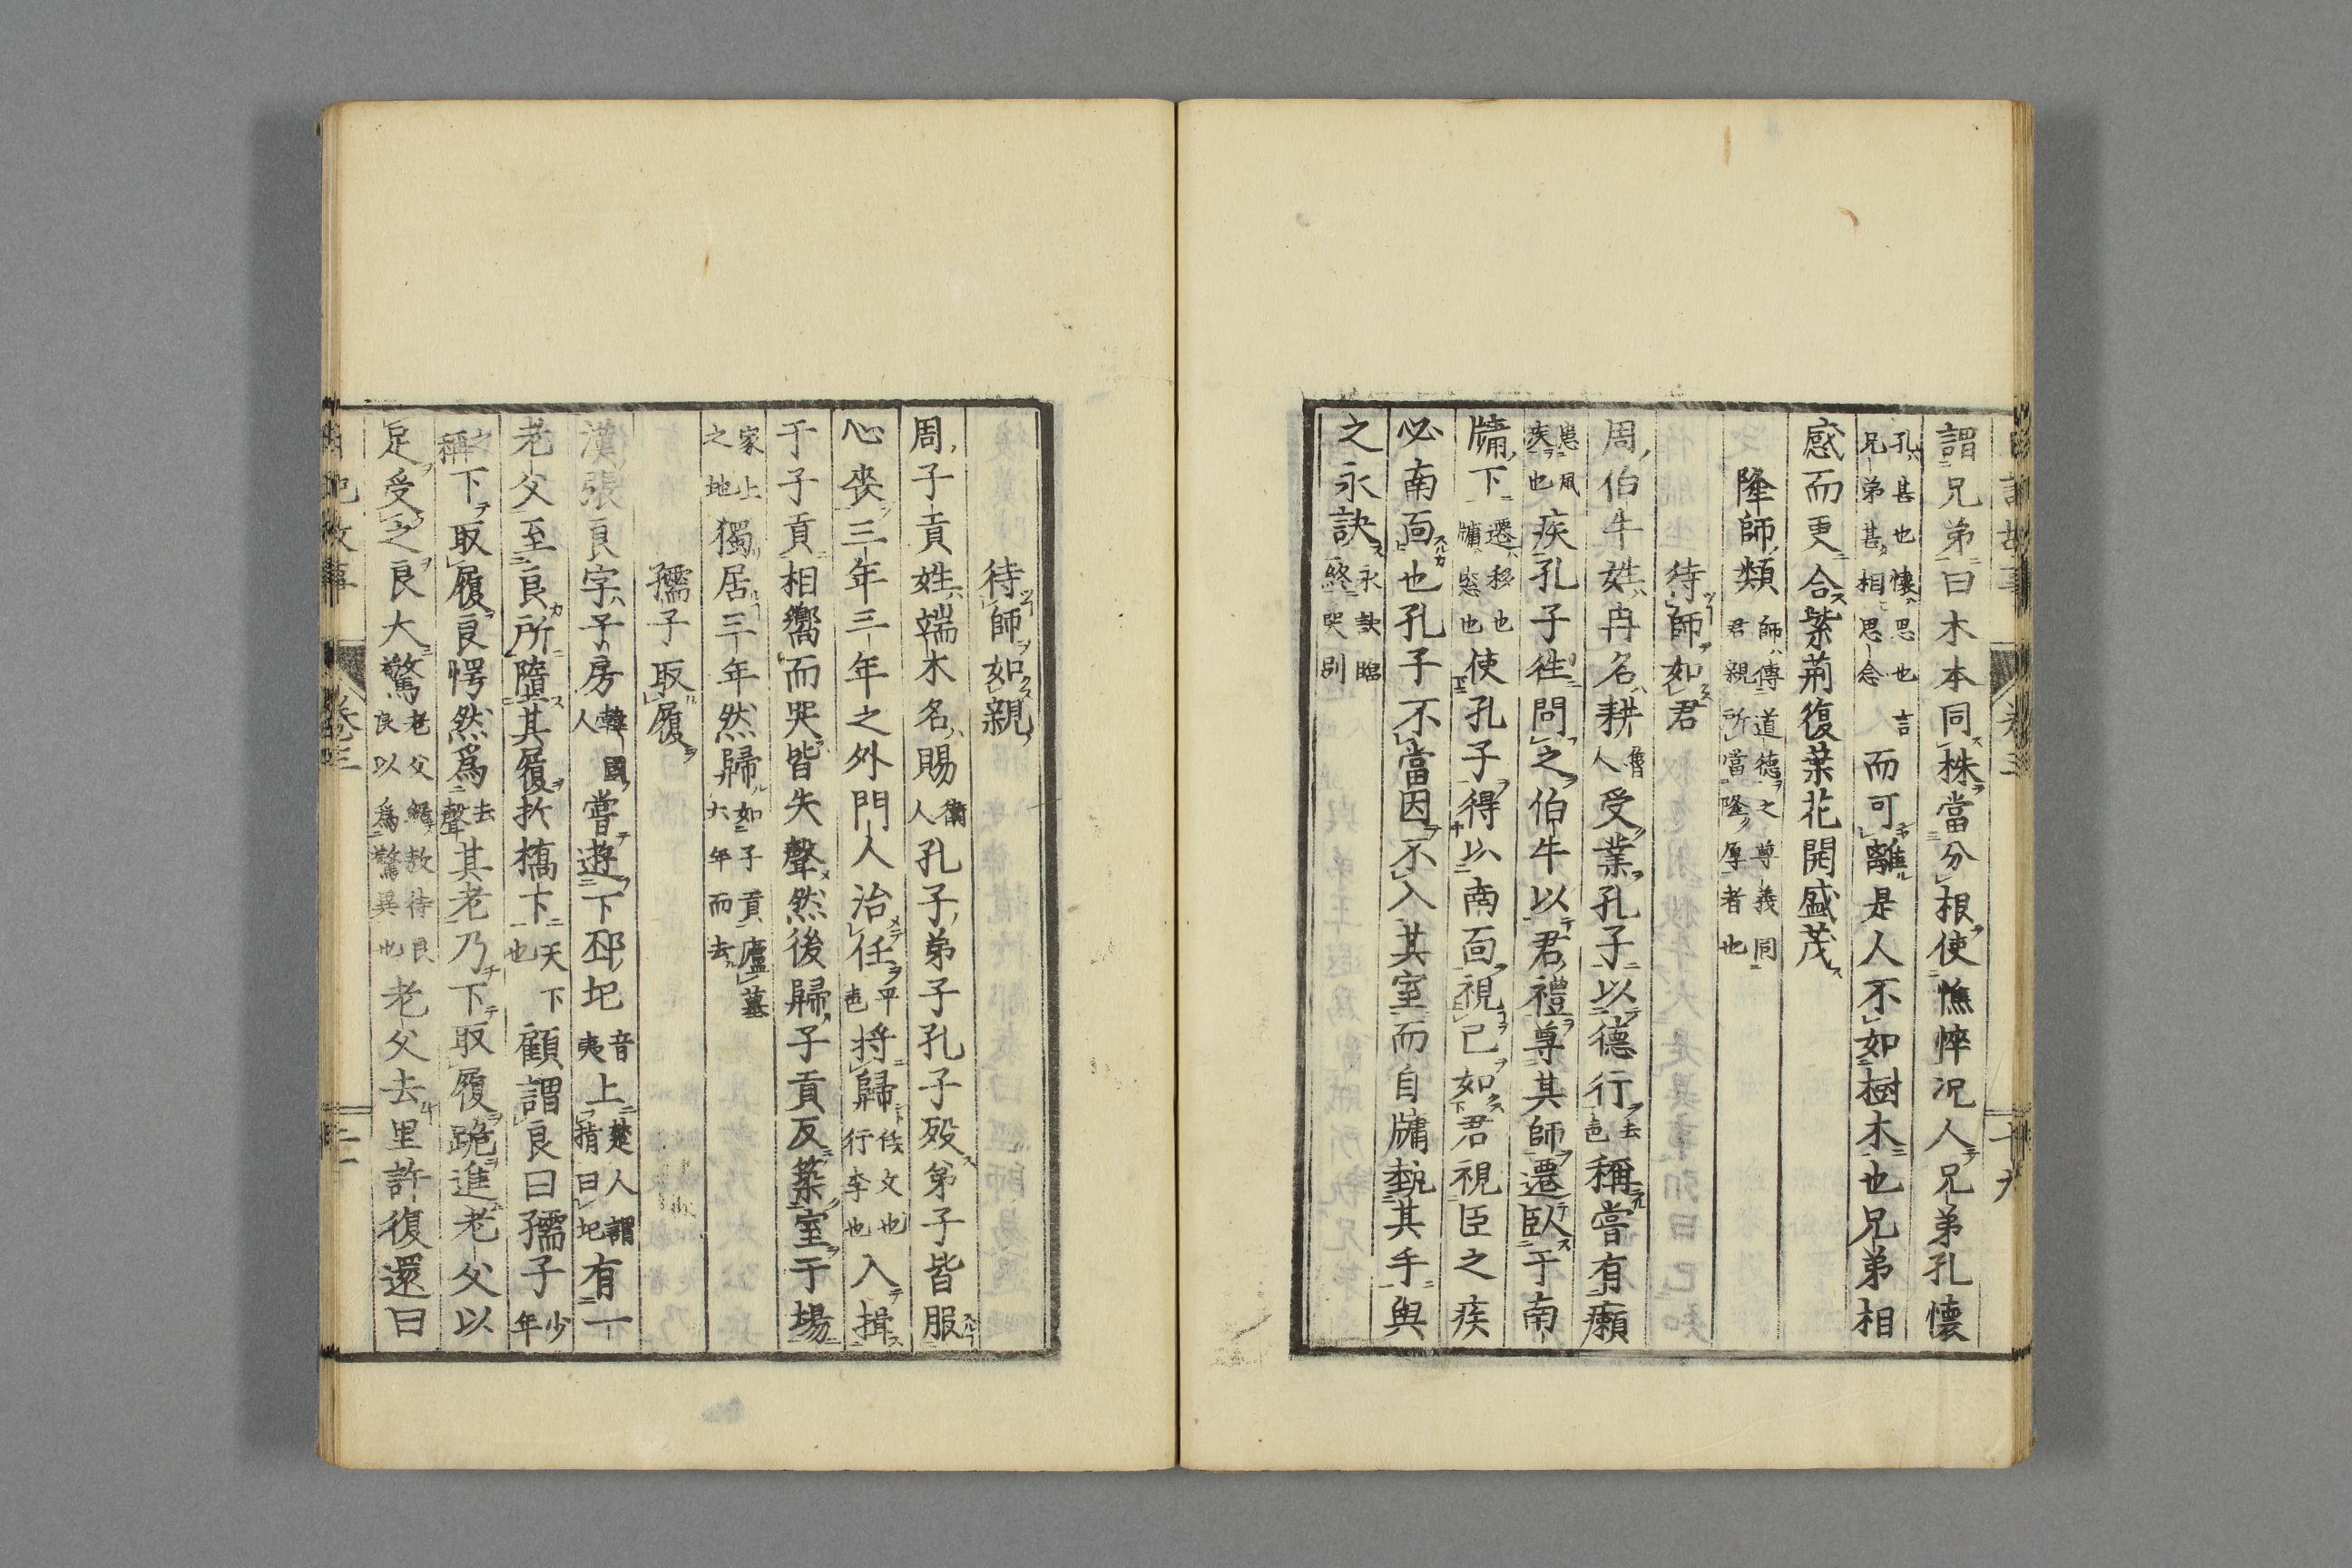 謂兄弟曰木本同株當分根使憔悴況人兄弟孔懷
孔甚也懷思也言兄弟甚相思念而可離是人不如樹木也兄弟相
感而更合紫荊復葉花開盛茂
隆師類師傳道德之尊義同君親所當隆厚者也
待師如君
周伯牛姓冉名耕魯人受業孔子以德行去色稱嘗有癩
患風疾也疾孔子往問之伯牛以君禮尊其師遷臥于南
牗下遷移也牗窓也使孔子得以南面視已如君視臣之疾
必南面也孔子不當因不入其室而自牗執其手與
之永訣永訣臨終哭別
待師如親
周子貢姓端木名賜衛人孔子弟子孔子歿弟子皆服
心喪三年三年之外門人治任平色將歸任文也行李也入揖
于子貢相嚮而哭皆失聲然後歸子貢反築室于場
家上之地獨居三年然歸如子貢廬墓六年而去
孺子取履
漢張良字子房韓國人嘗遊下邳圯音夷上楚人謂揹曰圯有一
老父至良所墮其履於橋下天下也顧謂良曰孺子少年
之稱下取履良愕然爲去聲其老乃下取履跪進老父以
足受之良大驚老父觧敖待良良以爲驚異也老父去里許復還曰
卷三